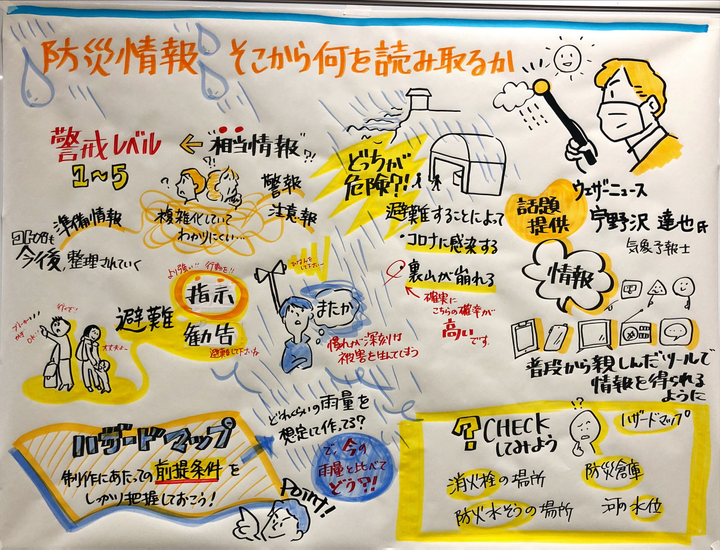 防災情報 そこから何を読み取るか
警戒レベル
1~5
← "相当情報"?!
警報
注意報
複雑化していて
わかりにくい…
準備情報
今後、整理されていく
より強い!! 行動を!!
指示
避難
勧告
避難して下さいね
どっちが
危険?!
避難することによって
・コロナに感染する
・裏山が崩れる
確実に
こちらの確率が
高いです。
またか
慣れが深刻な
被害を生んでしまう
話題
提供
ウェザーニュース
宇野沢 達也氏
気象予報士
情報
普段から親しんだツールで
情報を得られる
ように
ハザードマップ
制作にあたっての前提条件を
しっかり把握しておこう!
どれくらいの雨量を
想定して作ってる?
で、今の
雨量と比べて
どう?!
Point!
? CHECK
してみよう
!?
ハザードマップ
消火栓の場所
防災倉庫
防火水そうの場所
河の水位